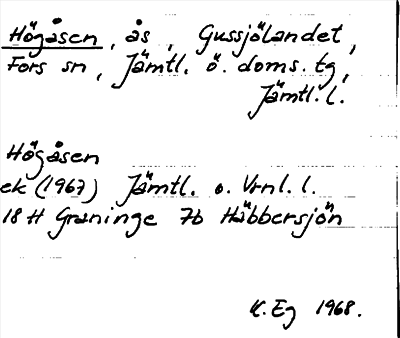 Högåsen, ås, Gussjölandet,
Fors sn, Jämtl. ö. doms. tg,
Jämtl. l.
Högåsen
ek (1967) Jämtl. o. Vrnl. l.
18 H Graninge 7b Häbbersjön
K. Eg 1968.